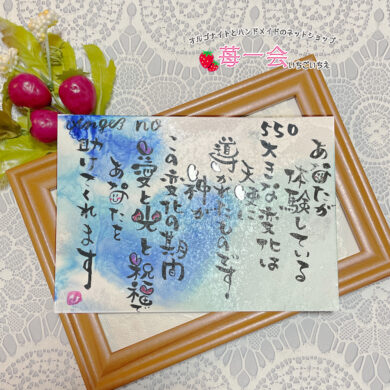 オルゴナイトとハンドメイドのネットショップ
苺一会
いちごいちえ
angel no
550
あなたが
体験している
大きな変化は
天使に
導かれたものです。
神が
この変化の期間
愛と光と祝福で
あなたを
助けてくれます